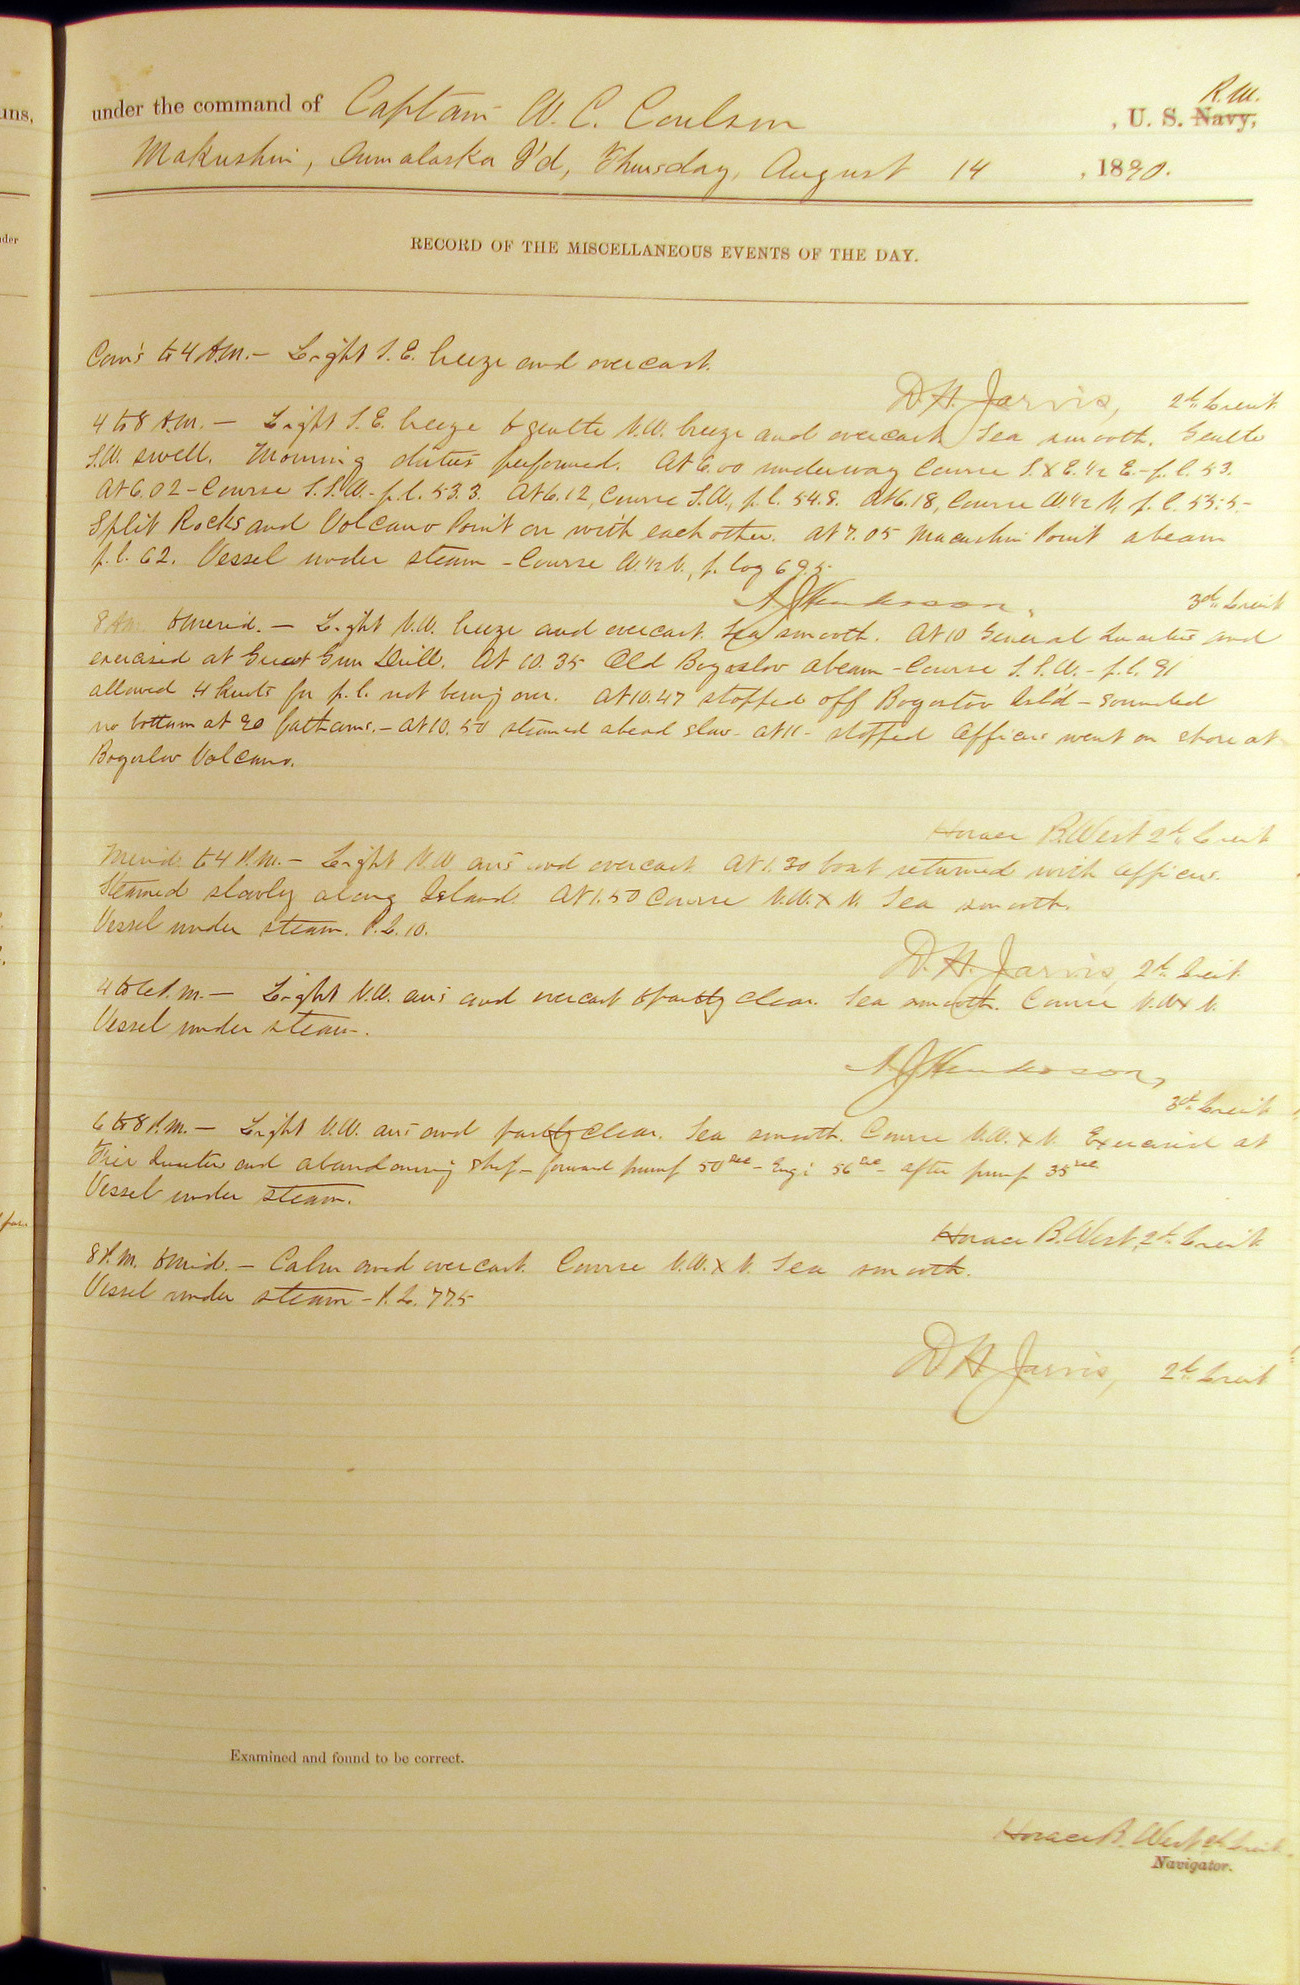 under the command of Captain W. C. Coulson , U. S. Navy, R.M.
Makushin, Ounalaska I'd, Thursday, August 14 , 1890.
RECORD OF THE MISCELLANEOUS EVENTS OF THE DAY.
Com's to 4 A.M. — Light S.E. breeze and overcast.
D. H. Jarvis, 2d. Lieut.
4 to 8 A.M. — Light S.E. breeze to gentle N.W. breeze and overcast. Sea smooth. Gentle
S.W. swell. Morning duties performed. At 6.00 underway Course S. x E. 1/2 E. - p.l. 53.
At 6.02 - Course S.S.W. - p.l. 53.3. At 6.12, Course S.W., p.l. 54.8. At 6.18, Course W. 1/2 N. p.l. 55.5 -
Split Rocks and Volcano Point on with each other. At 7.05 Macushin Point abeam
p.l. 62. Vessel under steam - Course W. 1/2 N., p. log 69.5
A J Henderson. 3d. Lieut
8 A.M. to merid. — Light N.W. breeze and overcast. Sea smooth. At 10 General Quarters and
exercised at Great Gun Drill. At 10.35 Old Bogoslov abeam - Course S.S.W. - p.l. 91
allowed 4 knots for p.l. not being over. At 10.47 stopped off Bogoslov Isl'd - sounded
no bottom at 90 fathoms. - At 10.50 steamed ahead slow - at 11 - stopped Officers went on shore at
Bogoslov Volcano.
Horace B. West 2d. Lieut
Merid. to 4 P.M. — Light N.W. airs and overcast. At 1.30 boat returned with officers.
Steamed slowly along Island. At 1.50 Course N.W. x N. Sea smooth.
Vessel under steam. P.L. 10.
D. H. Jarvis, 2d. Lieut.
4 to 6 P.M. — Light N.W. airs and overcast to partly clear. Sea smooth. Course N.W. x N.
Vessel under steam.
A J Henderson,
3d. Lieut
6 to 8 P.M. — Light N.W. airs and partly clear. Sea smooth. Course N.W. x N. Exercised at
Fire Quarters and abandoning ship - forward pump 50 sec - Eng: 56 sec - after pump 35 sec
Vessel under steam.
Horace B. West, 2d. Lieut
8 P.M. to mid. — Calm and overcast. Course N.W. x N. Sea smooth.
Vessel under steam - P.L. 77.5
D H Jarvis, 2d. Lieut
Examined and found to be correct.
Horace B. West 2d. Lieut.
Navigator.